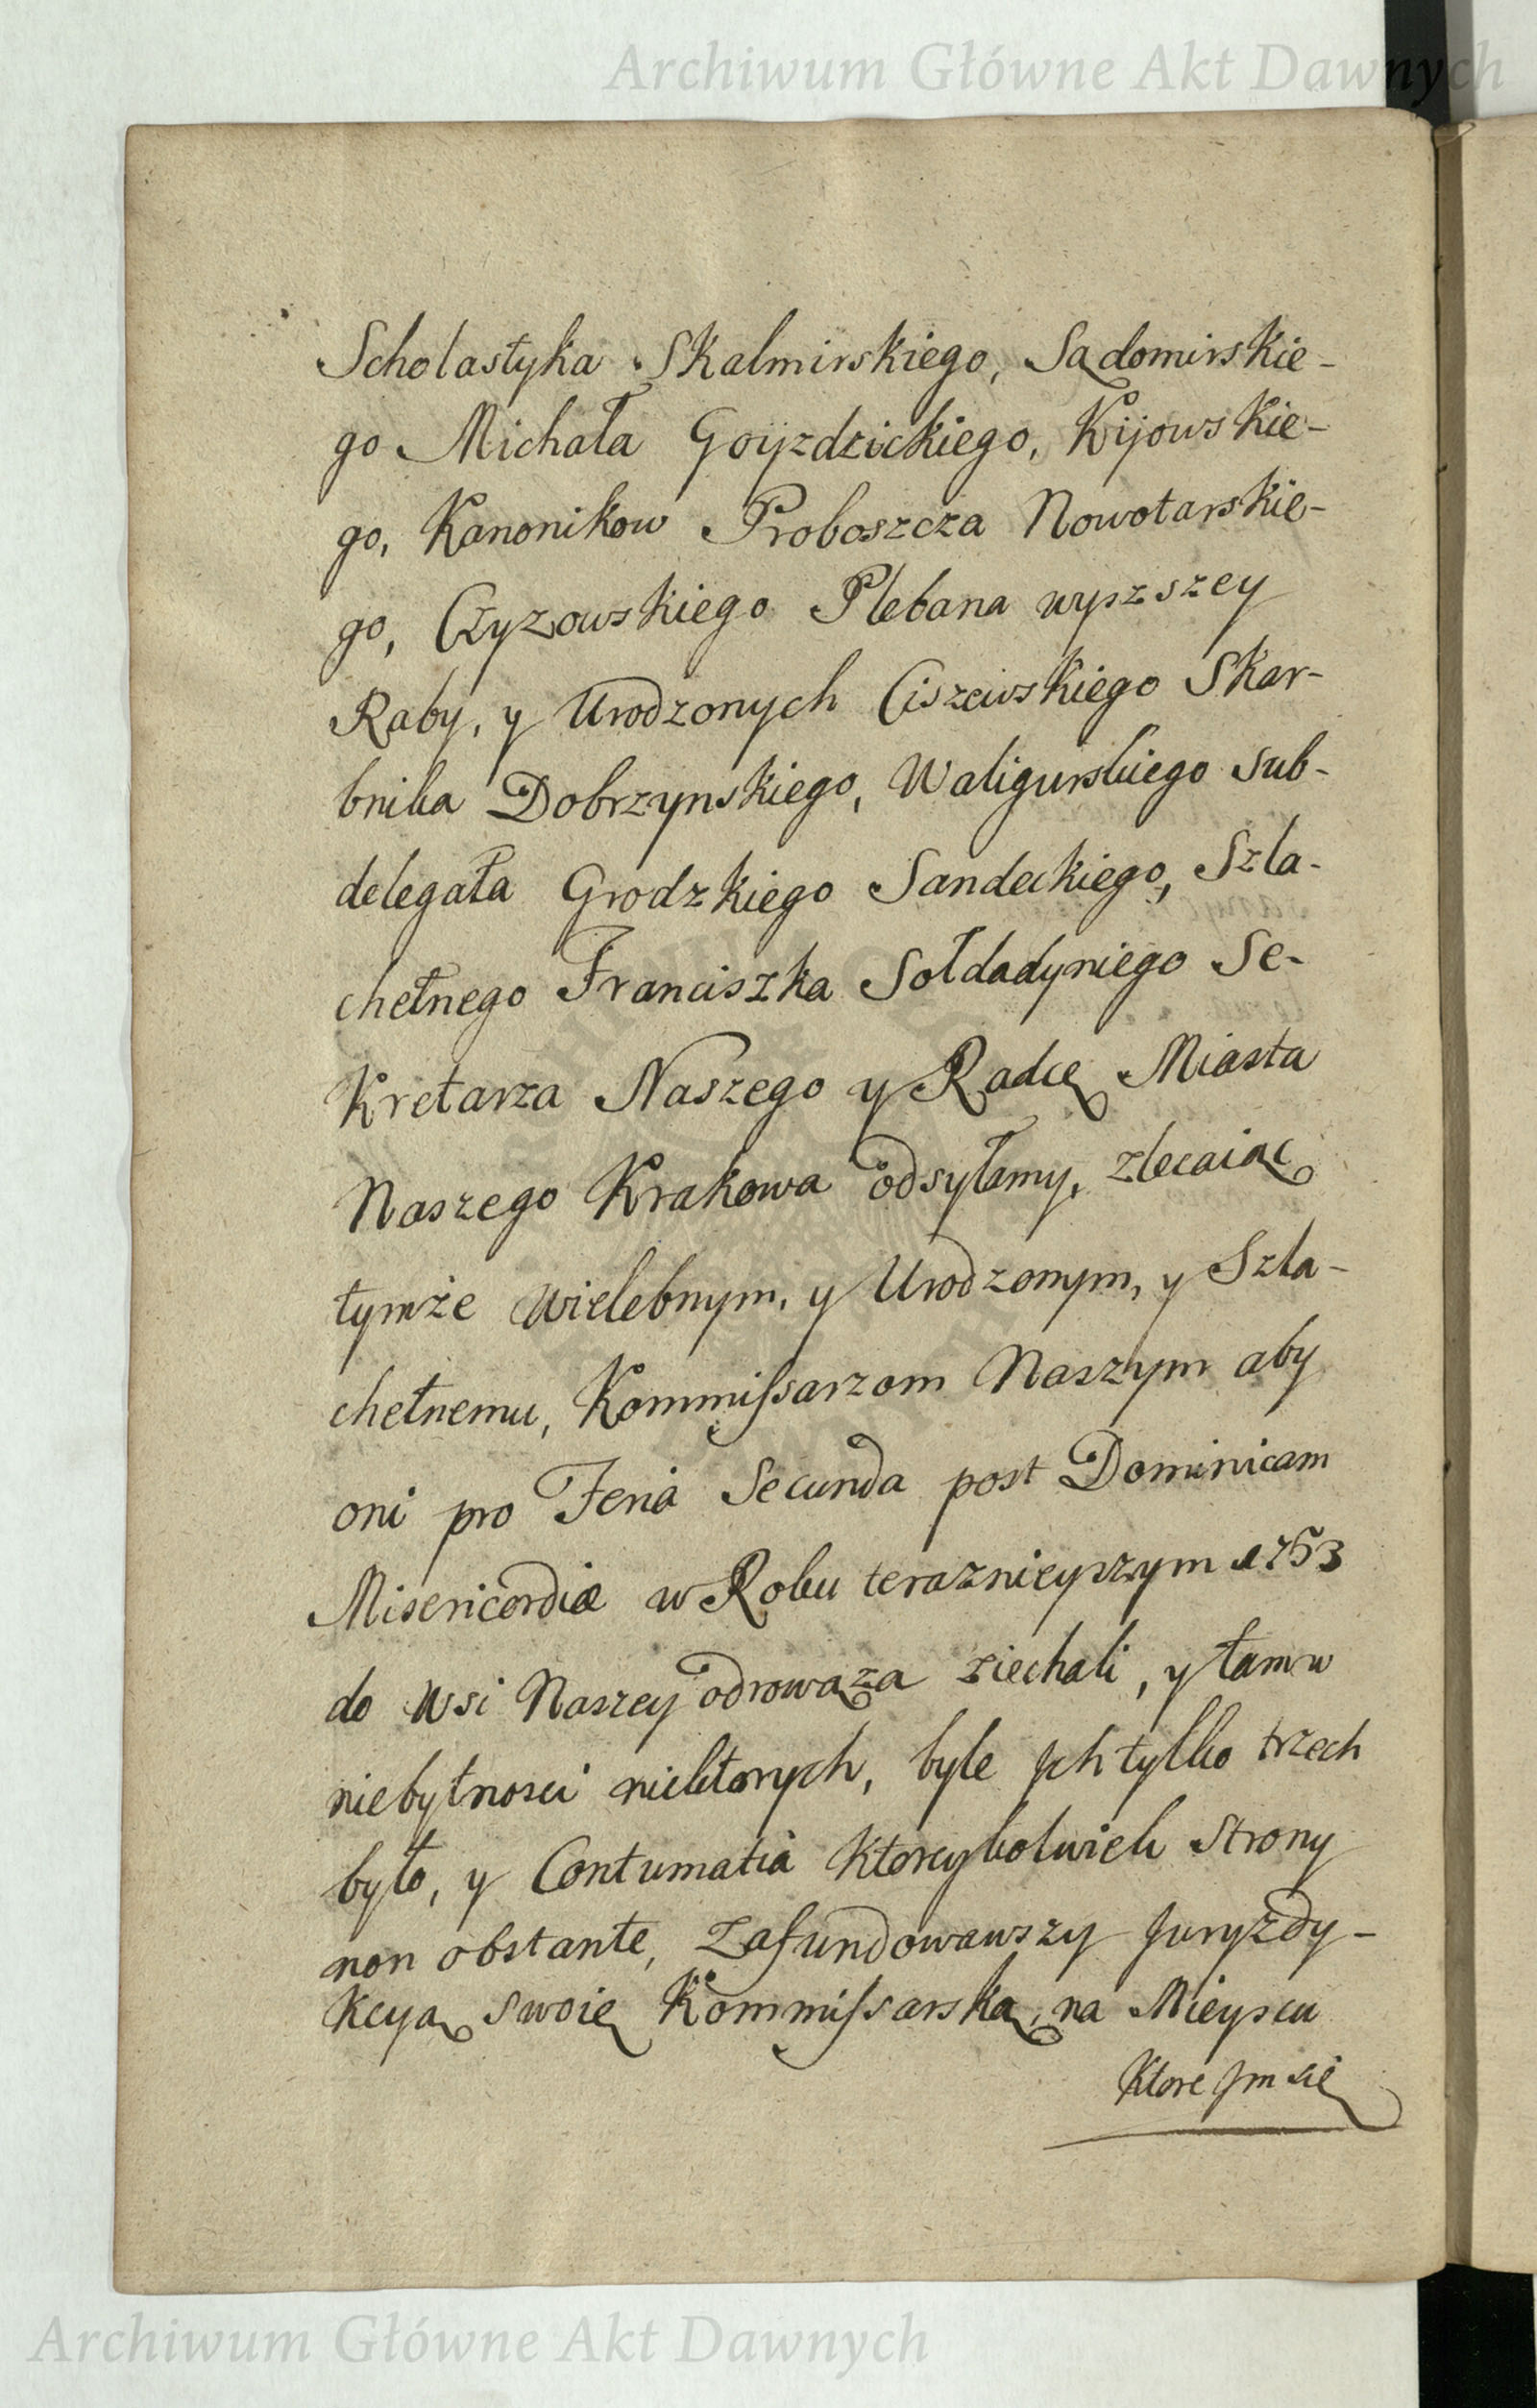 Archiwum Główne Akt Dawnych
Scholastyka Skalmirskiego, Sądomirskie-
go Michała Goyzdzickiego, Kijowskie-
go, Kanonikow Proboszcza Nowotarskie-
go, Czyzowskiego Plebana wyższey
Raby, y Urodzonych Ciszewskiego Skar-
bnika Dobrzynskiego, Waligurskiego Sub-
delegata Grodzkiego Sandeckiego, Szla-
chetnego Franciszka Sołdadyniego Se-
kretarza Naszego y Radcę Miasta
Naszego Krakowa odsyłamy, zlecaiąc
tymże Wielebnym, y Urodzonym, y Szla-
chetnemu, Kommissarzom Naszym aby
oni pro Feria Secunda post Dominicam
Misericordiæ w Roku teraznieyszym 1753
do Wsi Naszey odrowąża ziechali, y tam w
niebytnosci niektorych, byle Jch tylko trzech
było, y Contumatia Ktoreykolwiek Strony
non obstante, Zafundowawszy Juryzdy-
kcyą swoię Kommissarską, na Mieyscu
Ktore Jm się
Archiwum Główne Akt Dawnych